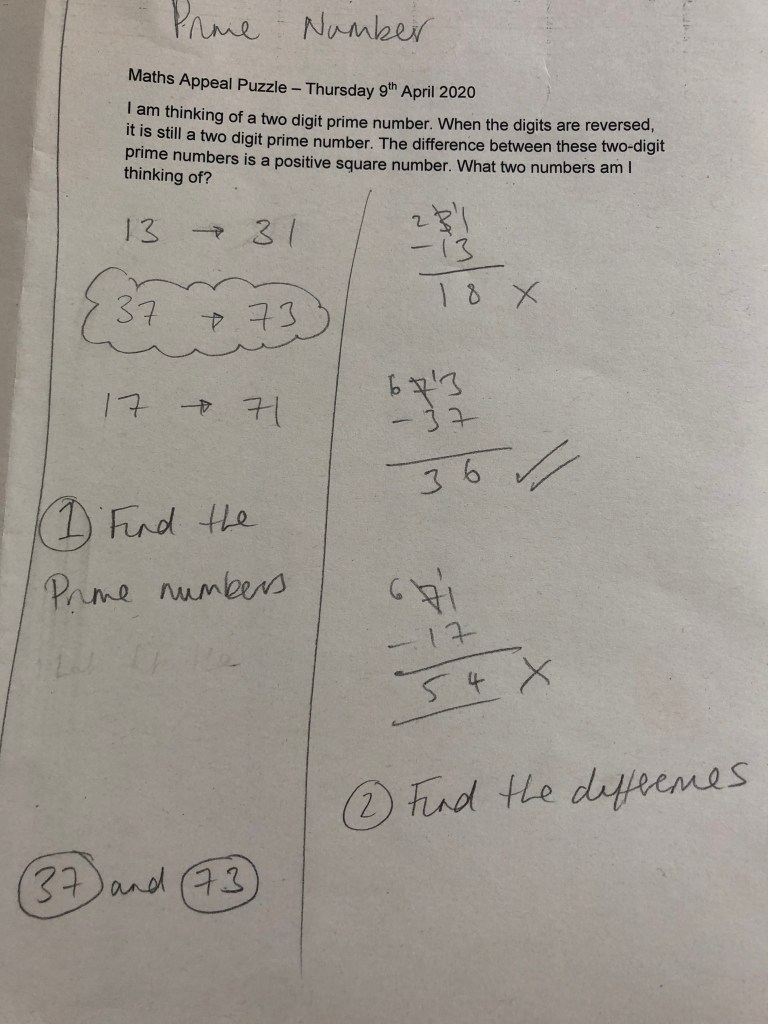 Prime Number
Maths Appeal Puzzle – Thursday 9th April 2020
I am thinking of a two digit prime number. When the digits are reversed,
it is still a two digit prime number. The difference between these two-digit
prime numbers is a positive square number. What two numbers am I
thinking of?
13 → 31
37 → 73
17 → 71
① Find the
Prime numbers
37 and 73
2 31
- 13
18 X
6 7 13
- 37
36 ✓✓
6 71
- 17
54 X
② Find the differences